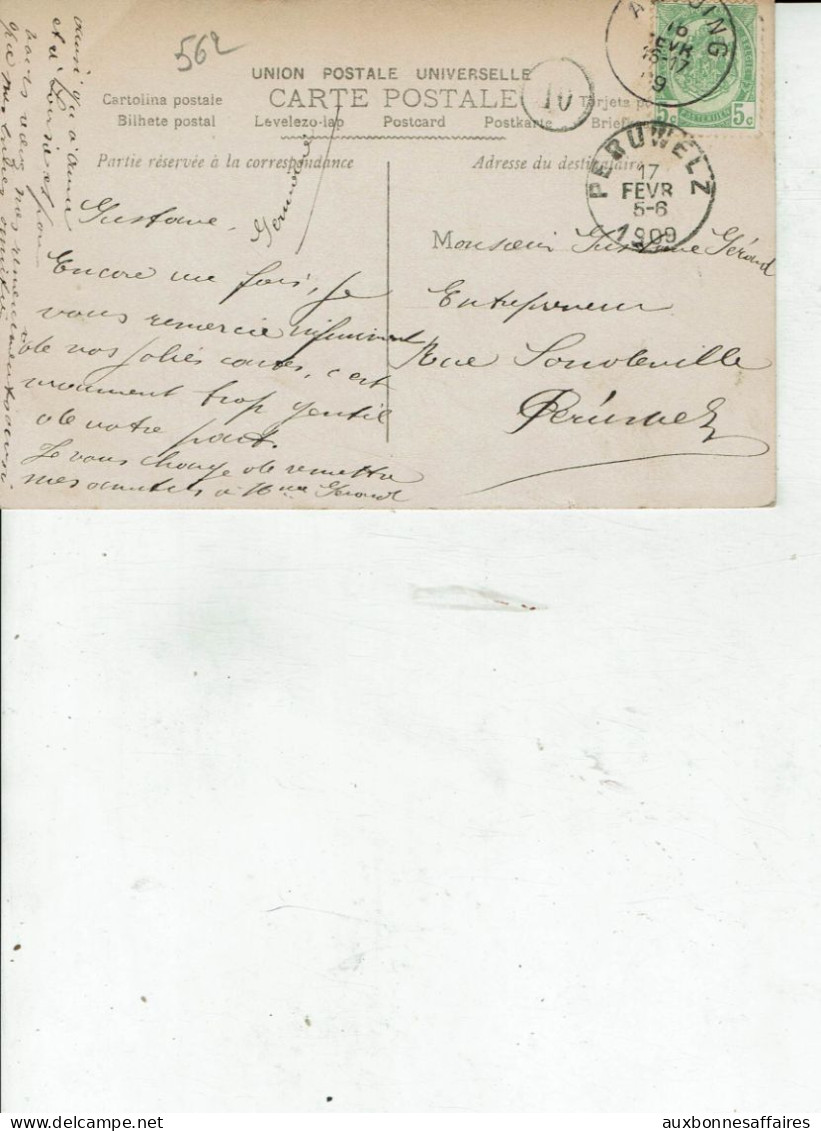 562
UNION POSTALE UNIVERSELLE
CARTE POSTALE
Cartolina postale
Bilhete postal Levelezo-lap Postcard Postkarte
Tarjeta
Partie réservée à la correspondance
Adresse du destinataire
10
16
15-17
9
5c 5c
PERUWELZ
17
FEVR
5-6
1909
Gustave.
Encore une fois, je
vous remercie infiniment
de vos jolies cartes, c'est
vraiment trop gentil
de votre part.
Je vous charge de remettre
mes amitiés à Mme Gérard
ainsi qu'à
et à Louise
Germaine
Monsieur Gustave Gérard
Entrepreneur
Rue Sondeville
Péruwelz
delcampe.net
auxbonnesaffaires